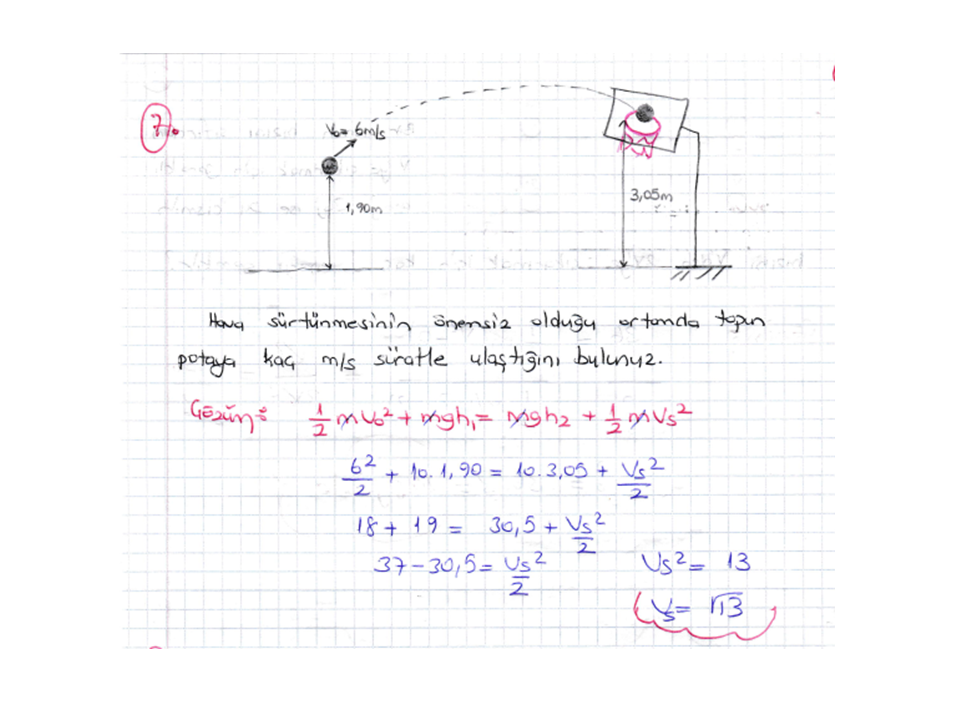 7.
V₀= 6m/s
1,90m
3,05m
Hava sürtünmesinin önemsiz olduğu ortamda topun
potaya kaç m/s süratle ulaştığını bulunuz.
Çözüm: 1/2 mV₀² + mgh₁ = mgh₂ + 1/2 mVs²
6²/2 + 10.1,90 = 10.3,05 + Vs²/2
18 + 19 = 30,5 + Vs²/2
37 - 30,5 = Vs²/2
Vs² = 13
Vs = √13